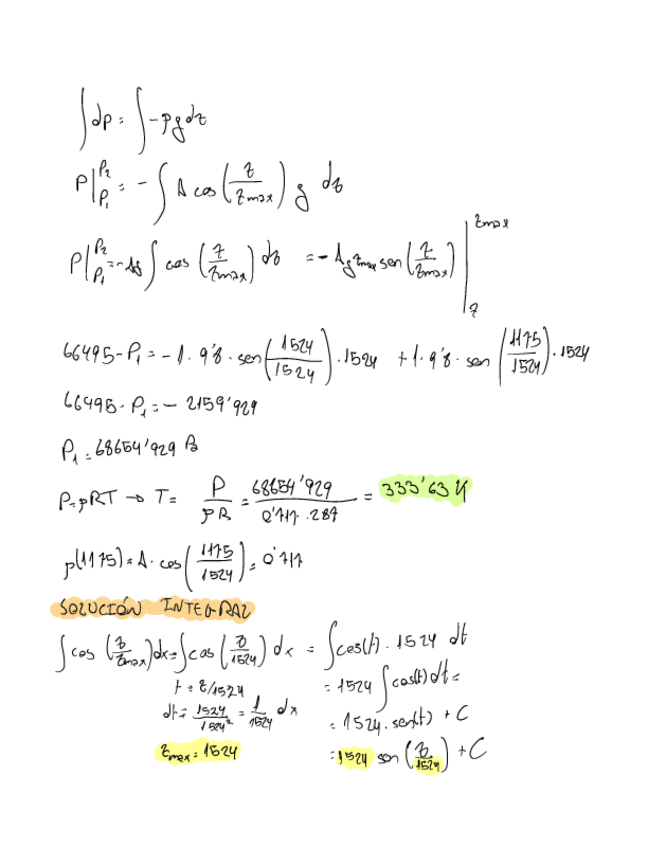 ∫dp = ∫-ρgdz
P|P₂ P₁ = - ∫ A cos(z/zmax) g dz
P|P₂ P₁ = -Ag ∫ cos(z/zmax) dz = - A g zmax sen(z/zmax) | zmax z
66495-P₁ = -1·9'8·sen(1524/1524)·1524 + 1·9'8·sen(1175/1524)·1524
66495-P₁ = - 2159'929
P₁ = 68654'929 Pa
P=ρRT → T= P/ρR = 68654'929/0'717·287 = 333'63 K
ρ(1175) = A·cos(1175/1524) = 0'717
SOLUCIÓN INTEGRAL
∫cos(z/zmax)dx = ∫cos(z/1524)dx = ∫cos(t)·1524 dt
t = z/1524 = 1524 ∫cos(t)dt =
dt = 1524/1524² = 1/1524 dx = 1524·sen(t) + C
zmax = 1524 = 1524 sen(z/1524) + C